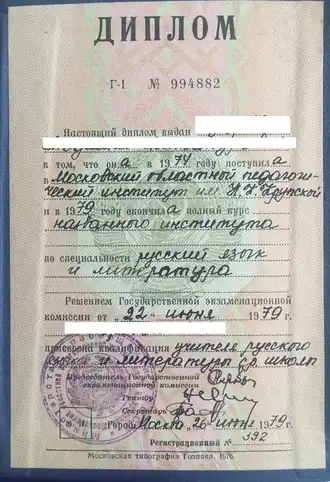 ДИПЛОМ
Г-1 № 994882
Настоящий диплом выдан
в том, что она в 1974 году поступила
в Московский областной педагоги-
ческий институт им. Н.К. Крупской
и в 1979 году окончила полный курс
названного института
по специальности русский язык
и литература
Решением Государственной экзаменационной
комиссии от „22" июня 1979 г.
присвоена квалификация учителя русского
языка и литературы ср. школы
Председатель Государственной
экзаменационной комиссии
Ректор
Секретарь
Город Москва, 26 июня 1979 г.
Регистрационный № 392
Московская типография Гознака. 1976.